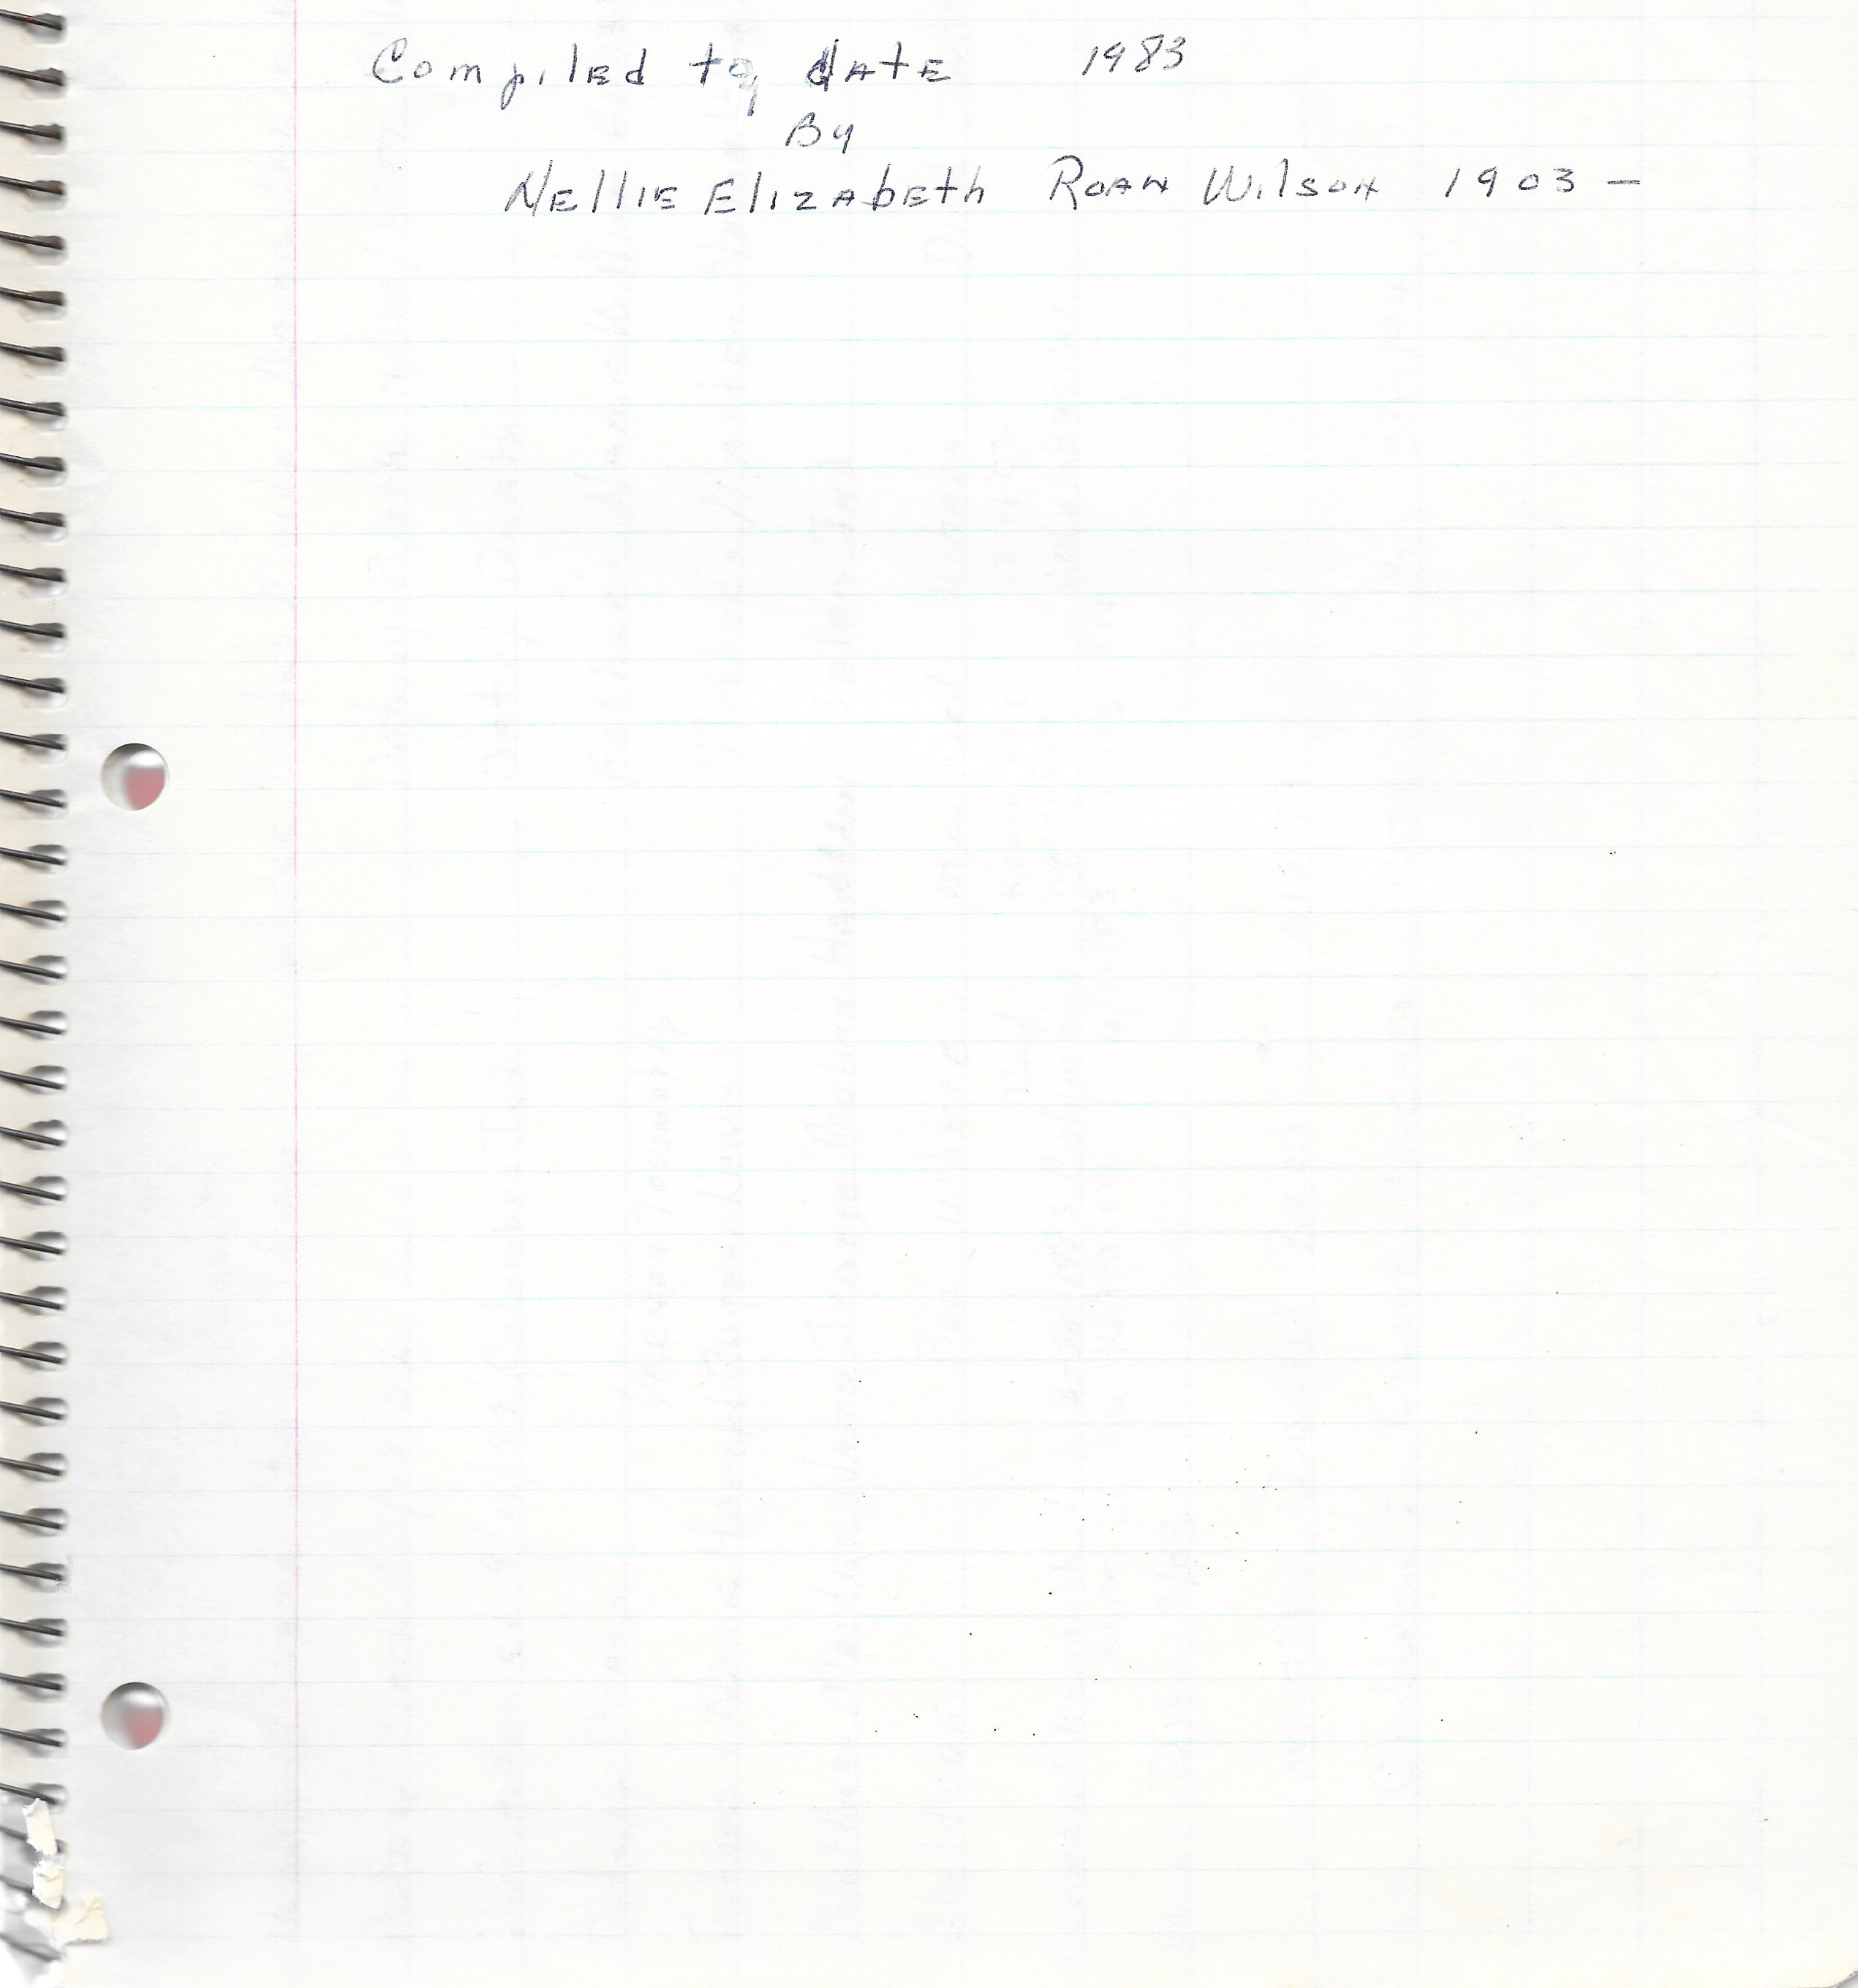 Compiled to date 1983
By
Nellie Elizabeth Roan Wilson 1903 –